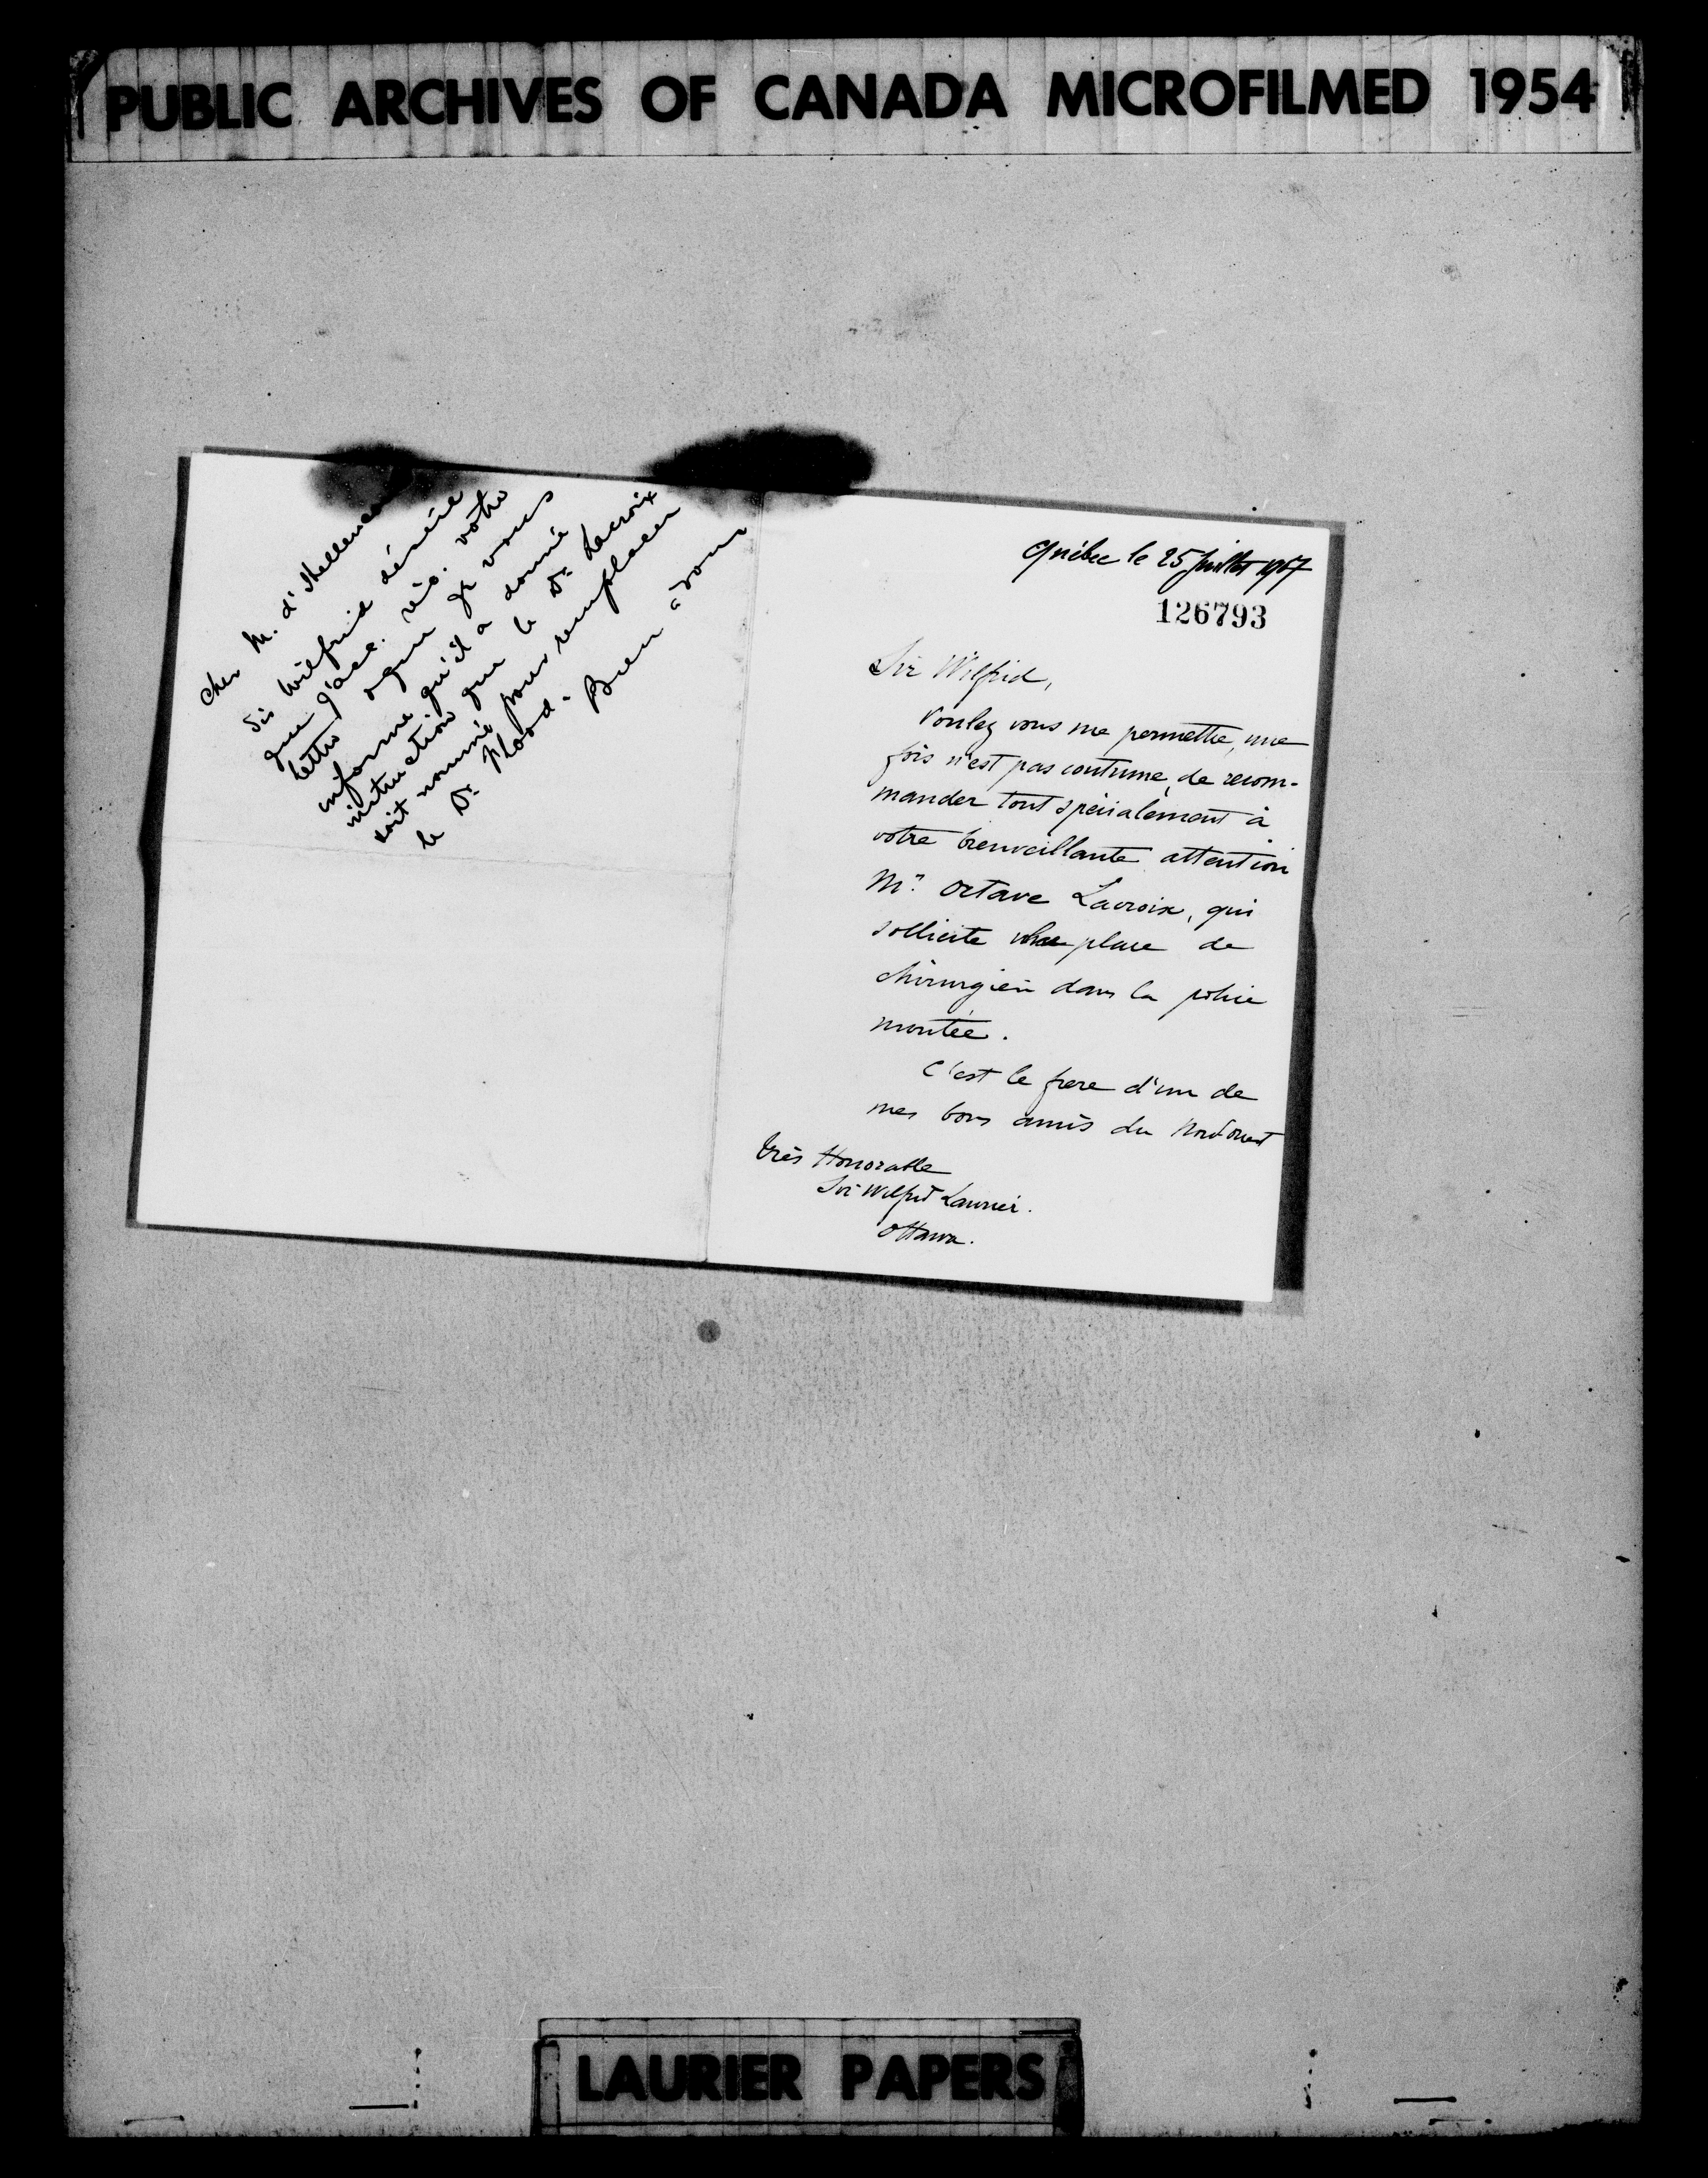 PUBLIC ARCHIVES OF CANADA MICROFILMED 1954
Cher M. d'Hellencourt
Sir Wilfrid désire
que j'acc. réc. votre
lettre & que je vous
informe qu'il a donné
instruction que le Dr. Lacroix
soit nommé pour remplacer
le Dr. Flood. Bien à vous
Québec le 25 Juillet 1907
126793
Sir Wilfrid,
Voulez vous me permettre, une
fois n'est pas coutume, de recom-
mander tout spécialement à
votre bienveillante attention
Mr. Octave Lacroix, qui
sollicite une place de
chirurgien dans la police
montée.
C'est le frere d'un de
mes bons amis du Nord ouest
Très Honorable
Sir Wilfrid Laurier.
Ottawa.
LAURIER PAPERS